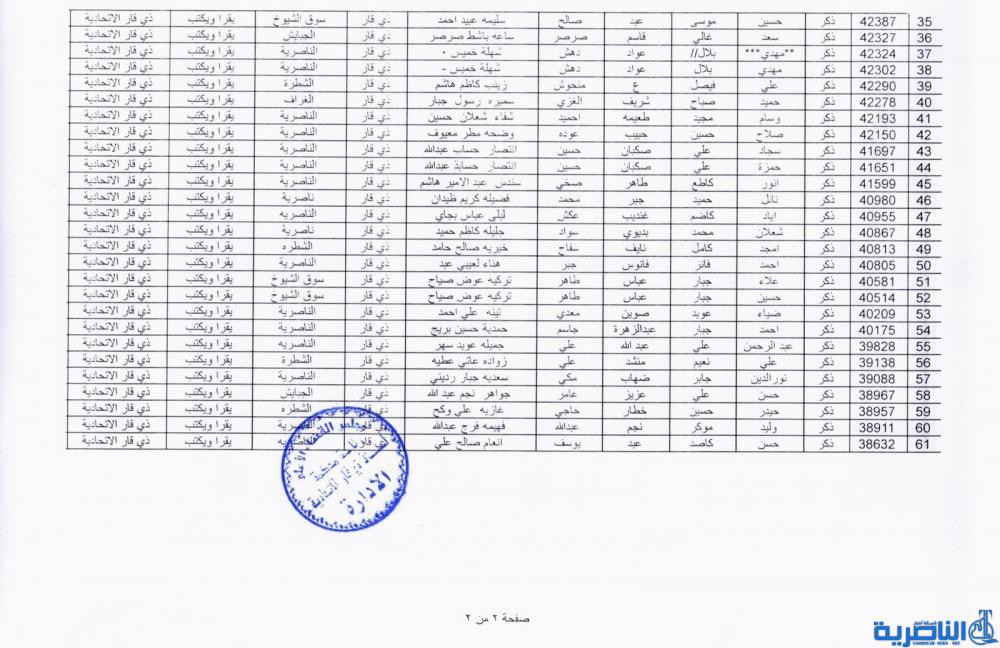 35 42387 ذكر حسين موسى عبد صالح سليمه عبيد احمد ذي قار سوق الشيوخ يقرا ويكتب ذي قار الاتحادية
36 42327 ذكر سعد غالي قاسم صرصر ساعه باشط صرصر ذي قار الجبايش يقرا ويكتب ذي قار الاتحادية
37 42324 ذكر **مهدي*** بلال// عواد دهش شهلة خميس ٠ ذي قار الناصرية يقرا ويكتب ذي قار الاتحادية
38 42302 ذكر مهدي بلال عواد دهش شهلة خميس - ذي قار الناصرية يقرا ويكتب ذي قار الاتحادية
39 42290 ذكر علي فيصل ع منحوش زينب كاظم هاشم ذي قار الشطرة يقرا ويكتب ذي قار الاتحادية
40 42278 ذكر حميد صباح شريف الغزي سميره رسول جبار ذي قار الغراف يقرا ويكتب ذي قار الاتحادية
41 42193 ذكر وسام مجيد طعيمه احميد شفاء شعلان حسين ذي قار الناصرية يقرا ويكتب ذي قار الاتحادية
42 42150 ذكر صلاح حسين حبيب عوده وضحه مطر معيوف ذي قار الناصرية يقرا ويكتب ذي قار الاتحادية
43 41697 ذكر سجاد علي صكبان حسين انتصار حساب عبدالله ذي قار الناصرية يقرا ويكتب ذي قار الاتحادية
44 41651 ذكر حمزة علي صكبان حسين انتصار عبدالله ذي قار الناصرية يقرا ويكتب ذي قار الاتحادية
45 41599 ذكر انور كاطع طاهر صخي سندس عبد الامير هاشم ذي قار الناصرية يقرا ويكتب ذي قار الاتحادية
46 40980 ذكر نائل حميد جبر محمد فضيله كريم ظيدان ذي قار ناصرية يقرا ويكتب ذي قار الاتحادية
47 40955 ذكر اياد كاضم غنديب عكش ليلى عباس بجاي ذي قار الناصريه يقرا ويكتب ذي قار الاتحادية
48 40867 ذكر شعلان محمد بديوي سواد جليله كاظم حميد ذي قار ناصرية يقرا ويكتب ذي قار الاتحادية
49 40813 ذكر امجد كامل نايف سفاح خيريه صالح حامد ذي قار الشطره يقرا ويكتب ذي قار الاتحادية
50 40805 ذكر احمد فائز فانوس جبر هناء لعيبي عبد ذي قار الناصرية يقرا ويكتب ذي قار الاتحادية
51 40581 ذكر علاء جبار عباس طاهر تركيه عوض صياح ذي قار سوق الشيوخ يقرا ويكتب ذي قار الاتحادية
52 40514 ذكر حسين جبار عباس طاهر تركيه عوض صياح ذي قار سوق الشيوخ يقرا ويكتب ذي قار الاتحادية
53 40209 ذكر ضياء عويد صوين معدي تينه علي احمد ذي قار الناصرية يقرا ويكتب ذي قار الاتحادية
54 40175 ذكر احمد جبار عبدالزهرة جاسم حمدية حسين بريج ذي قار الناصرية يقرا ويكتب ذي قار الاتحادية
55 39828 ذكر عبد الرحمن علي عبد الله علي جميله عويد سهر ذي قار الناصرية يقرا ويكتب ذي قار الاتحادية
56 39138 ذكر علي نعيم منشد علي زواده عاتي عطيه ذي قار الشطرة يقرا ويكتب ذي قار الاتحادية
57 39088 ذكر نور الدين جابر ضهاب مكي سعديه جبار رديني ذي قار الناصرية يقرا ويكتب ذي قار الاتحادية
58 38967 ذكر حسن علي عزيز عامر جواهر نجم عبد الله ذي قار الجبايش يقرا ويكتب ذي قار الاتحادية
59 38957 ذكر حيدر حسين خطار خاجي غازيه علي وكح ذي قار الشطره يقرا ويكتب ذي قار الاتحادية
60 38911 ذكر وليد موكر نجم عبدالله فهيمه فرج عبدالله ذي قار الناصرية يقرا ويكتب ذي قار الاتحادية
61 38632 ذكر حسن كاصد عبد يوسف انعام صالح علي ذي قار يقرا ويكتب ذي قار الاتحادية
مجلس القضاء الاعلى
ذي قار الاتحادية
الادارة
صفحة ٢ من ٢
شبكة أخبار
الناصرية
NASIRIYAH NEWS NET